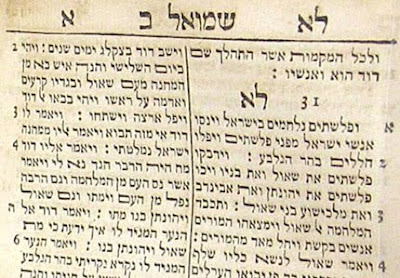 לא שמואל ב א
ולכל המקמות אשר התהלך שם
דוד הוא ואנשיו :
לא 31
א ופלשתים נלחמים בישראל וינסו
אנשי ישראל מפני פלשתים ויפלו
2 חללים בהר הגלבע : וידבקו
פלשתים את שאול ואת בניו ויכו
פלשתים את יהונתן ואת אבינדב
3 ואת מלכישוע בני שאול : ותכבד
המלחמה אל שאול וימצאהו המורים
אנשים בקשת ויחל מאד מהמורים :
4 ויאמר שאול לנשא כליו שלף
הערלים
2 וישב דוד בצקלג ימים שנים : ויהי
ביום השלישי והנה איש בא מן
המחנה מעם שאול ובגדיו קרעים
ואדמה על ראשו ויהי בבאו אל דוד
3 ויפל ארצה וישתחו : ויאמר לו
דוד אי מזה תבוא ויאמר אליו ממחנה
4 ישראל נמלטתי : ויאמר אליו דוד
מה היה הדבר הגד נא לי ויאמר
אשר נס העם מן המלחמה וגם הרבה
נפל מן העם וימתו וגם שאול
5 ויהונתן בנו מתו : ויאמר דוד אל
הנער המגיד לו איך ידעת כי מת
6 שאול ויהונתן בנו : ויאמר הנער
המגיד לו נקרא נקריתי בהר הגלבע